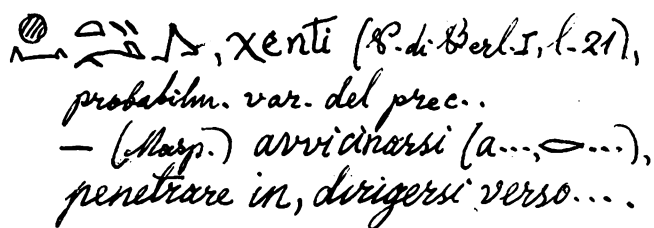 𓐍𓈖𓏏𓏭𓂻, χenti (P. di Berl. I, l. 21),
probabilm. var. del prec..
— (Masp.) avvicinarsi (a..., 𓂋...),
penetrare in, dirigersi verso....